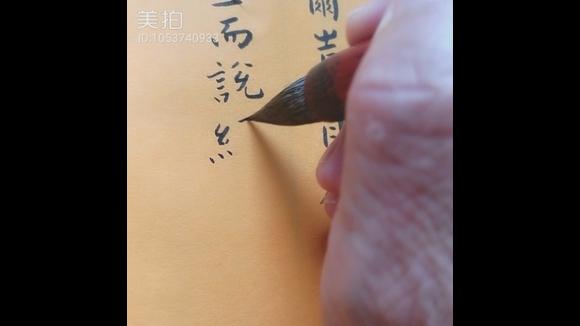 美拍
ID:1053740933
爾吉
而說糹